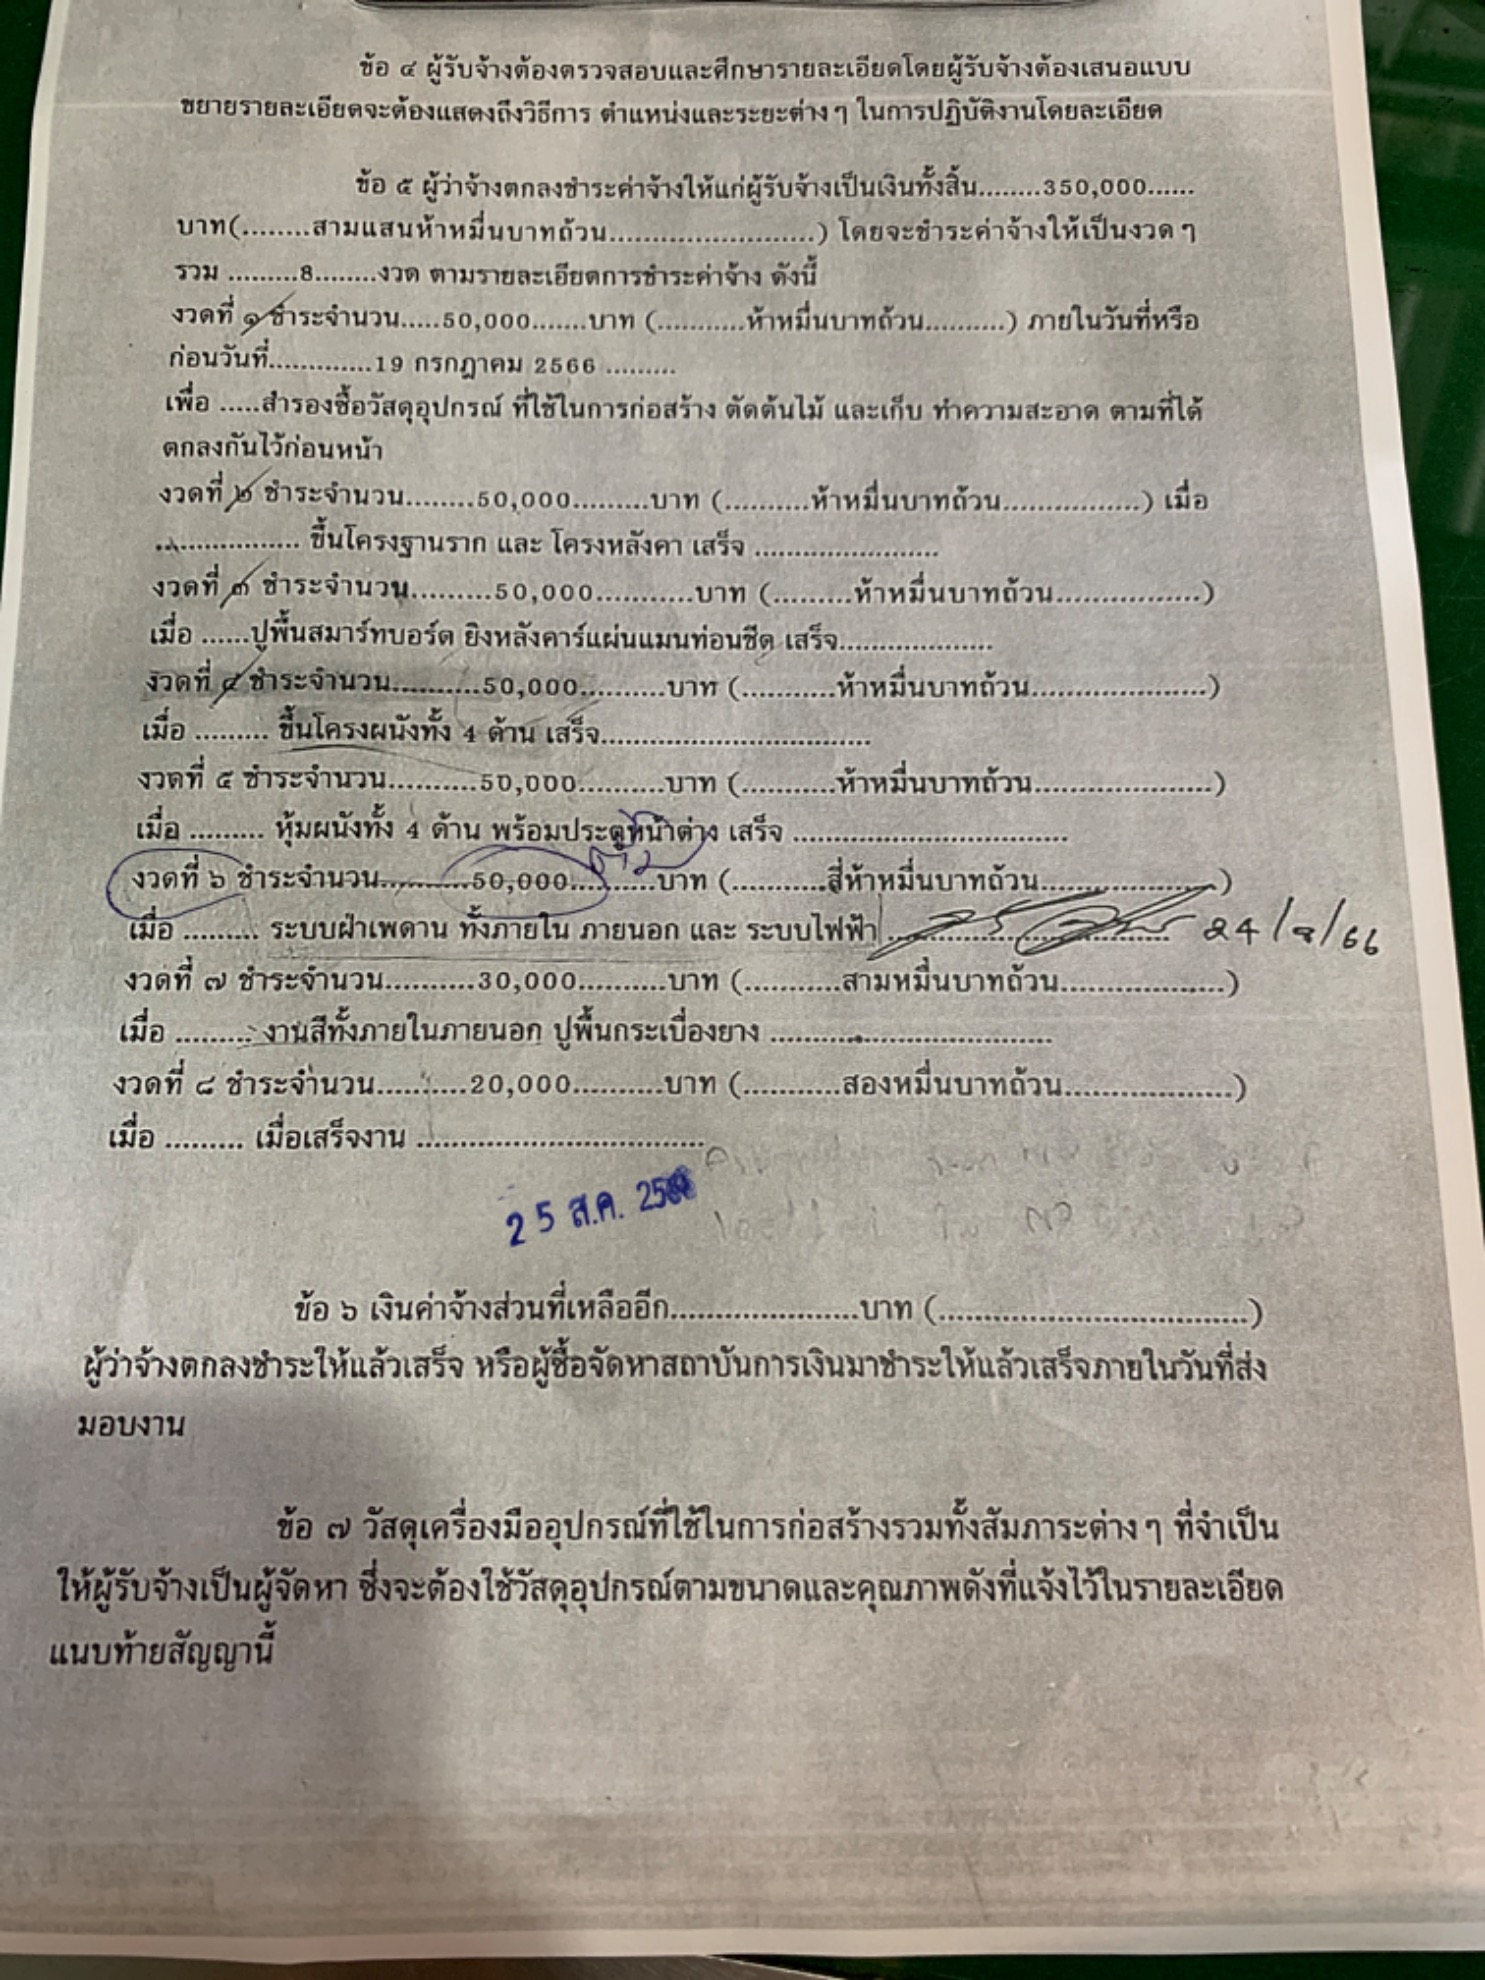 ข้อ ๔ ผู้รับจ้างต้องตรวจสอบและศึกษารายละเอียดโดยผู้รับจ้างต้องเสนอแบบ
ขยายรายละเอียดจะต้องแสดงถึงวิธีการ ตำแหน่งและระยะต่างๆ ในการปฏิบัติงานโดยละเอียด
ข้อ ๕ ผู้ว่าจ้างตกลงชำระค่าจ้างให้แก่ผู้รับจ้างเป็นเงินทั้งสิ้น........350,000......
บาท(........สามแสนห้าหมื่นบาทถ้วน........................) โดยจะชำระค่าจ้างให้เป็นงวดๆ
รวม .........8........งวด ตามรายละเอียดการชำระค่าจ้าง ดังนี้
งวดที่ ๑ ชำระจำนวน.....50,000.......บาท (...........ห้าหมื่นบาทถ้วน..........) ภายในวันที่หรือ
ก่อนวันที่.............19 กรกฎาคม 2566 .........
เพื่อ .....สำรองซื้อวัสดุอุปกรณ์ ที่ใช้ในการก่อสร้าง ตัดต้นไม้ และเก็บ ทำความสะอาด ตามที่ได้
ตกลงกันไว้ก่อนหน้า
งวดที่ ๒ ชำระจำนวน........50,000.........บาท (..........ห้าหมื่นบาทถ้วน................) เมื่อ
................. ขึ้นโครงฐานราก และ โครงหลังคา เสร็จ ......................
งวดที่ ๓ ชำระจำนวน.........50,000...........บาท (.........ห้าหมื่นบาทถ้วน.................)
เมื่อ ......ปูพื้นสมาร์ทบอร์ด ยิงหลังคาร์แผ่นแมนท่อนชีด เสร็จ..................
งวดที่ ๔ ชำระจำนวน..........50,000..........บาท (...........ห้าหมื่นบาทถ้วน.....................)
เมื่อ ......... ขึ้นโครงผนังทั้ง 4 ด้าน เสร็จ................................
งวดที่ ๕ ชำระจำนวน..........50,000..........บาท (...........ห้าหมื่นบาทถ้วน.....................)
เมื่อ ......... หุ้มผนังทั้ง 4 ด้าน พร้อมประตูหน้าต่าง เสร็จ ................................
งวดที่ ๖ ชำระจำนวน..........50,000..........บาท (...........สี่ห้าหมื่นบาทถ้วน....................)
เมื่อ ......... ระบบฝ้าเพดาน ทั้งภายใน ภายนอก และ ระบบไฟฟ้า ................................ 24/8/66
งวดที่ ๗ ชำระจำนวน..........30,000..........บาท (...........สามหมื่นบาทถ้วน...................)
เมื่อ ......... งานสีทั้งภายในภายนอก ปูพื้นกระเบื้องยาง .................................
งวดที่ ๘ ชำระจำนวน..........20,000..........บาท (...........สองหมื่นบาทถ้วน...................)
เมื่อ ......... เมื่อเสร็จงาน .................................
25 ส.ค. 2566
ข้อ ๖ เงินค่าจ้างส่วนที่เหลืออีก......................บาท (.................................)
ผู้ว่าจ้างตกลงชำระให้แล้วเสร็จ หรือผู้ซื้อจัดหาสถาบันการเงินมาชำระให้แล้วเสร็จภายในวันที่ส่ง
มอบงาน
ข้อ ๗ วัสดุเครื่องมืออุปกรณ์ที่ใช้ในการก่อสร้างรวมทั้งสัมภาระต่างๆ ที่จำเป็น
ให้ผู้รับจ้างเป็นผู้จัดหา ซึ่งจะต้องใช้วัสดุอุปกรณ์ตามขนาดและคุณภาพดังที่แจ้งไว้ในรายละเอียด
แนบท้ายสัญญานี้